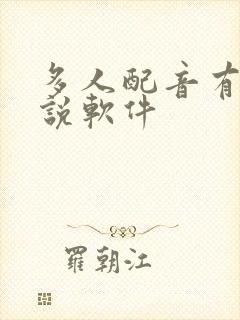 多人配音有
說軟件
羅朝江